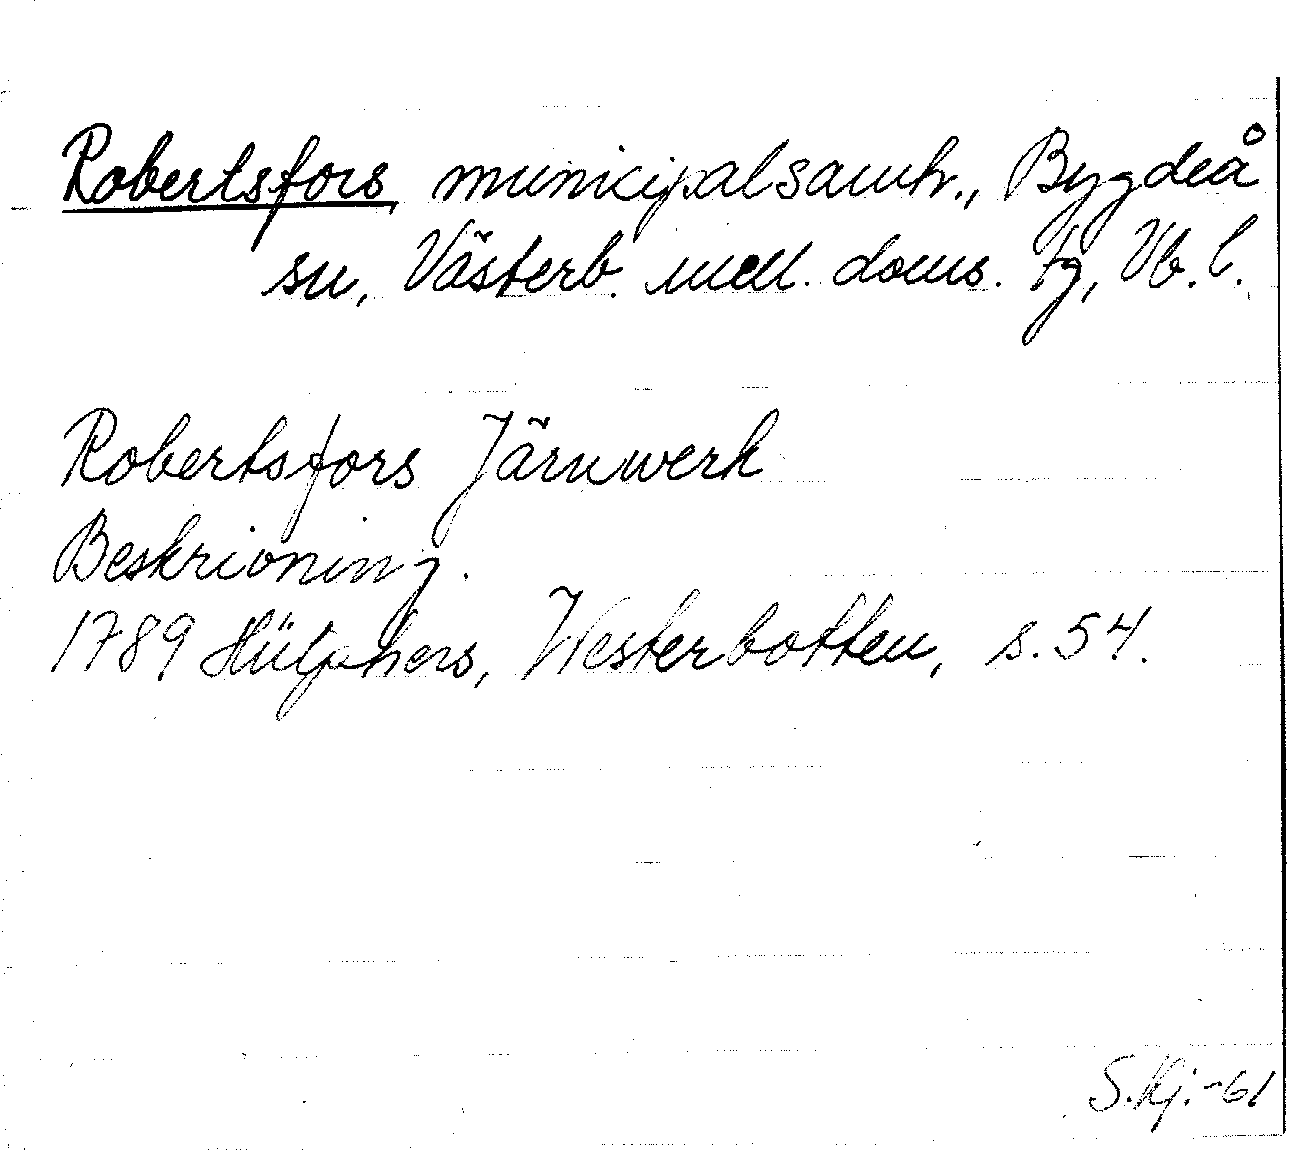 Robertsfors, municipalsamh., Bygdeå
sn, Västerb. mell. doms. tg, Vb. l.
Robertsfors Järnwerk
Beskrivning.
1789 Hülphers, Westerbotten, s. 54.
S.Kj. -61